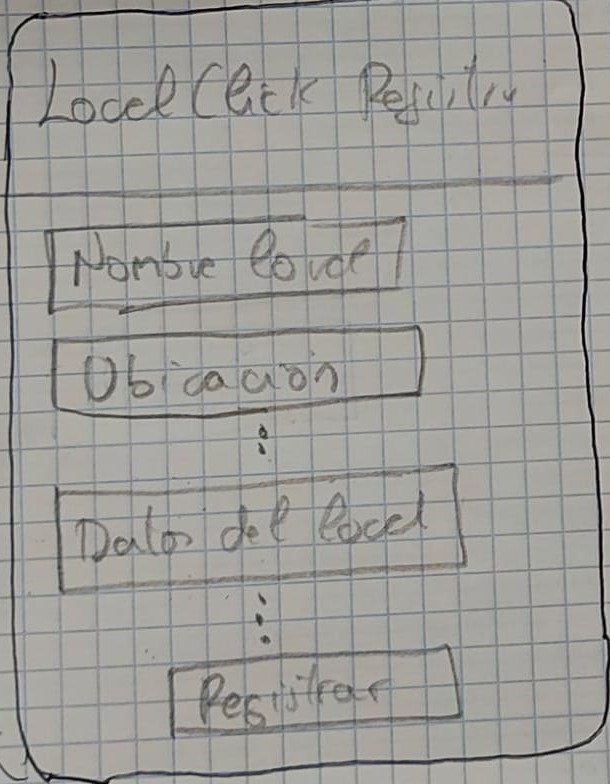 Local Click Registro
Nombre local
Ubicación
Datos del local
Registrar